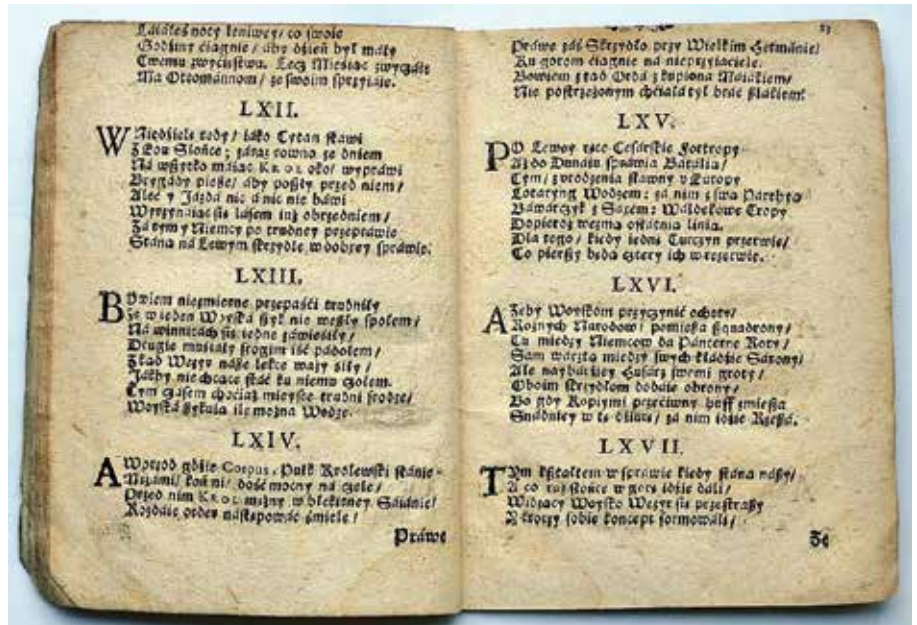 noty leniwey/ co swoie
Godźiny ćiągnie/ aby dźień był mały
Twemu zwyćięstwu. Lecz Mieśiąc zwyczáię
Na Ottomannom/ ze swoim sprzyiáie.
LXII.
W Niedźielę tedy/ iáko Tytan stáwi
Słońce; záraz rowno ze dniem
Na wszytko máiąc KROL oko/ wypráwi
Brygády piesze/ áby poszły przed niem/
Aleć y Jazdá nic á nic nie báwi
Wyrzynáiąc się lásem iuż obrzedniem/
Zá tym y Niemcy po trudney przepráwie
Stáną ná Lewym skrzydle w dobrey spráwie.
LXIII.
BOwiem niezmierne przepáśći trudniły
Że w ieden Woyská szyk nie weszły społem/
Ná winnicách się iedne záwieśiły/
Drugie muśiáły srogim iść padołem/
Zkąd Wezyr násze lekce waży śiły/
Jákby nie chcące stáć ku niemu czołem.
Tym czásem choćiaż mieysce trudni srodze/
Woyská szykuią ile można Wodze.
LXIV.
A Wprzod gdźie Corpus, Pułk Krolewski stánie
Mężámi/ końmi/ dość mocny ná czele/
Przed nim KROL mężny w błękitney Sáiánie/
Rozdáie order nástępowáć śmiele/
Práwe
Práwe záś Skrzydło przy Wielkim Hetmánie/
Ku gorom ćiągnie ná nieprzyiaćiele.
Bowiem ztąd Ordá zkupiona
Nie postrzeżonym chćiáłá tył bráć szlákiem.
LXV.
PO Lewey ręce Cesárskie
Aż do Dunáiu spráwia Bátalia/
Tym/ z urodzenia sławny w Europy
Lotáryng Wodzem: zá nim z swą Párthyą
Báwárczyk z Sáxem: Wáldekowe Tropy
Dopieroż wezmą ostátnią linią.
Dla tego/ kiedy iedni Turczyn przerwie/
Co pierszy będą cztery ich w rezerwie.
LXVI.
AŻeby Woyskom przyczynić ochoty/
Roznych Narodow/ pomiesza szquadrony/
Tu między Niemcow da Páncerne Roty/
Sam wárztá między swych kłádźie Sáxony/
Ale naybárźiey Husarz swemi groty/
Oboim skrzydłom dodáie obrony/
Bo gdy Kopiymi przećiwny huff zmiesza
Snádniey w tę dźiurę/ zá nim idźie Rzesza.
LXVII.
TYm kształtem w spráwie kiedy stáną nászy/
A co raz słońce w gorę idźie dáli/
Widzący Woysko Wezyr się przestrászy
sobie koncept formowáli/
Że